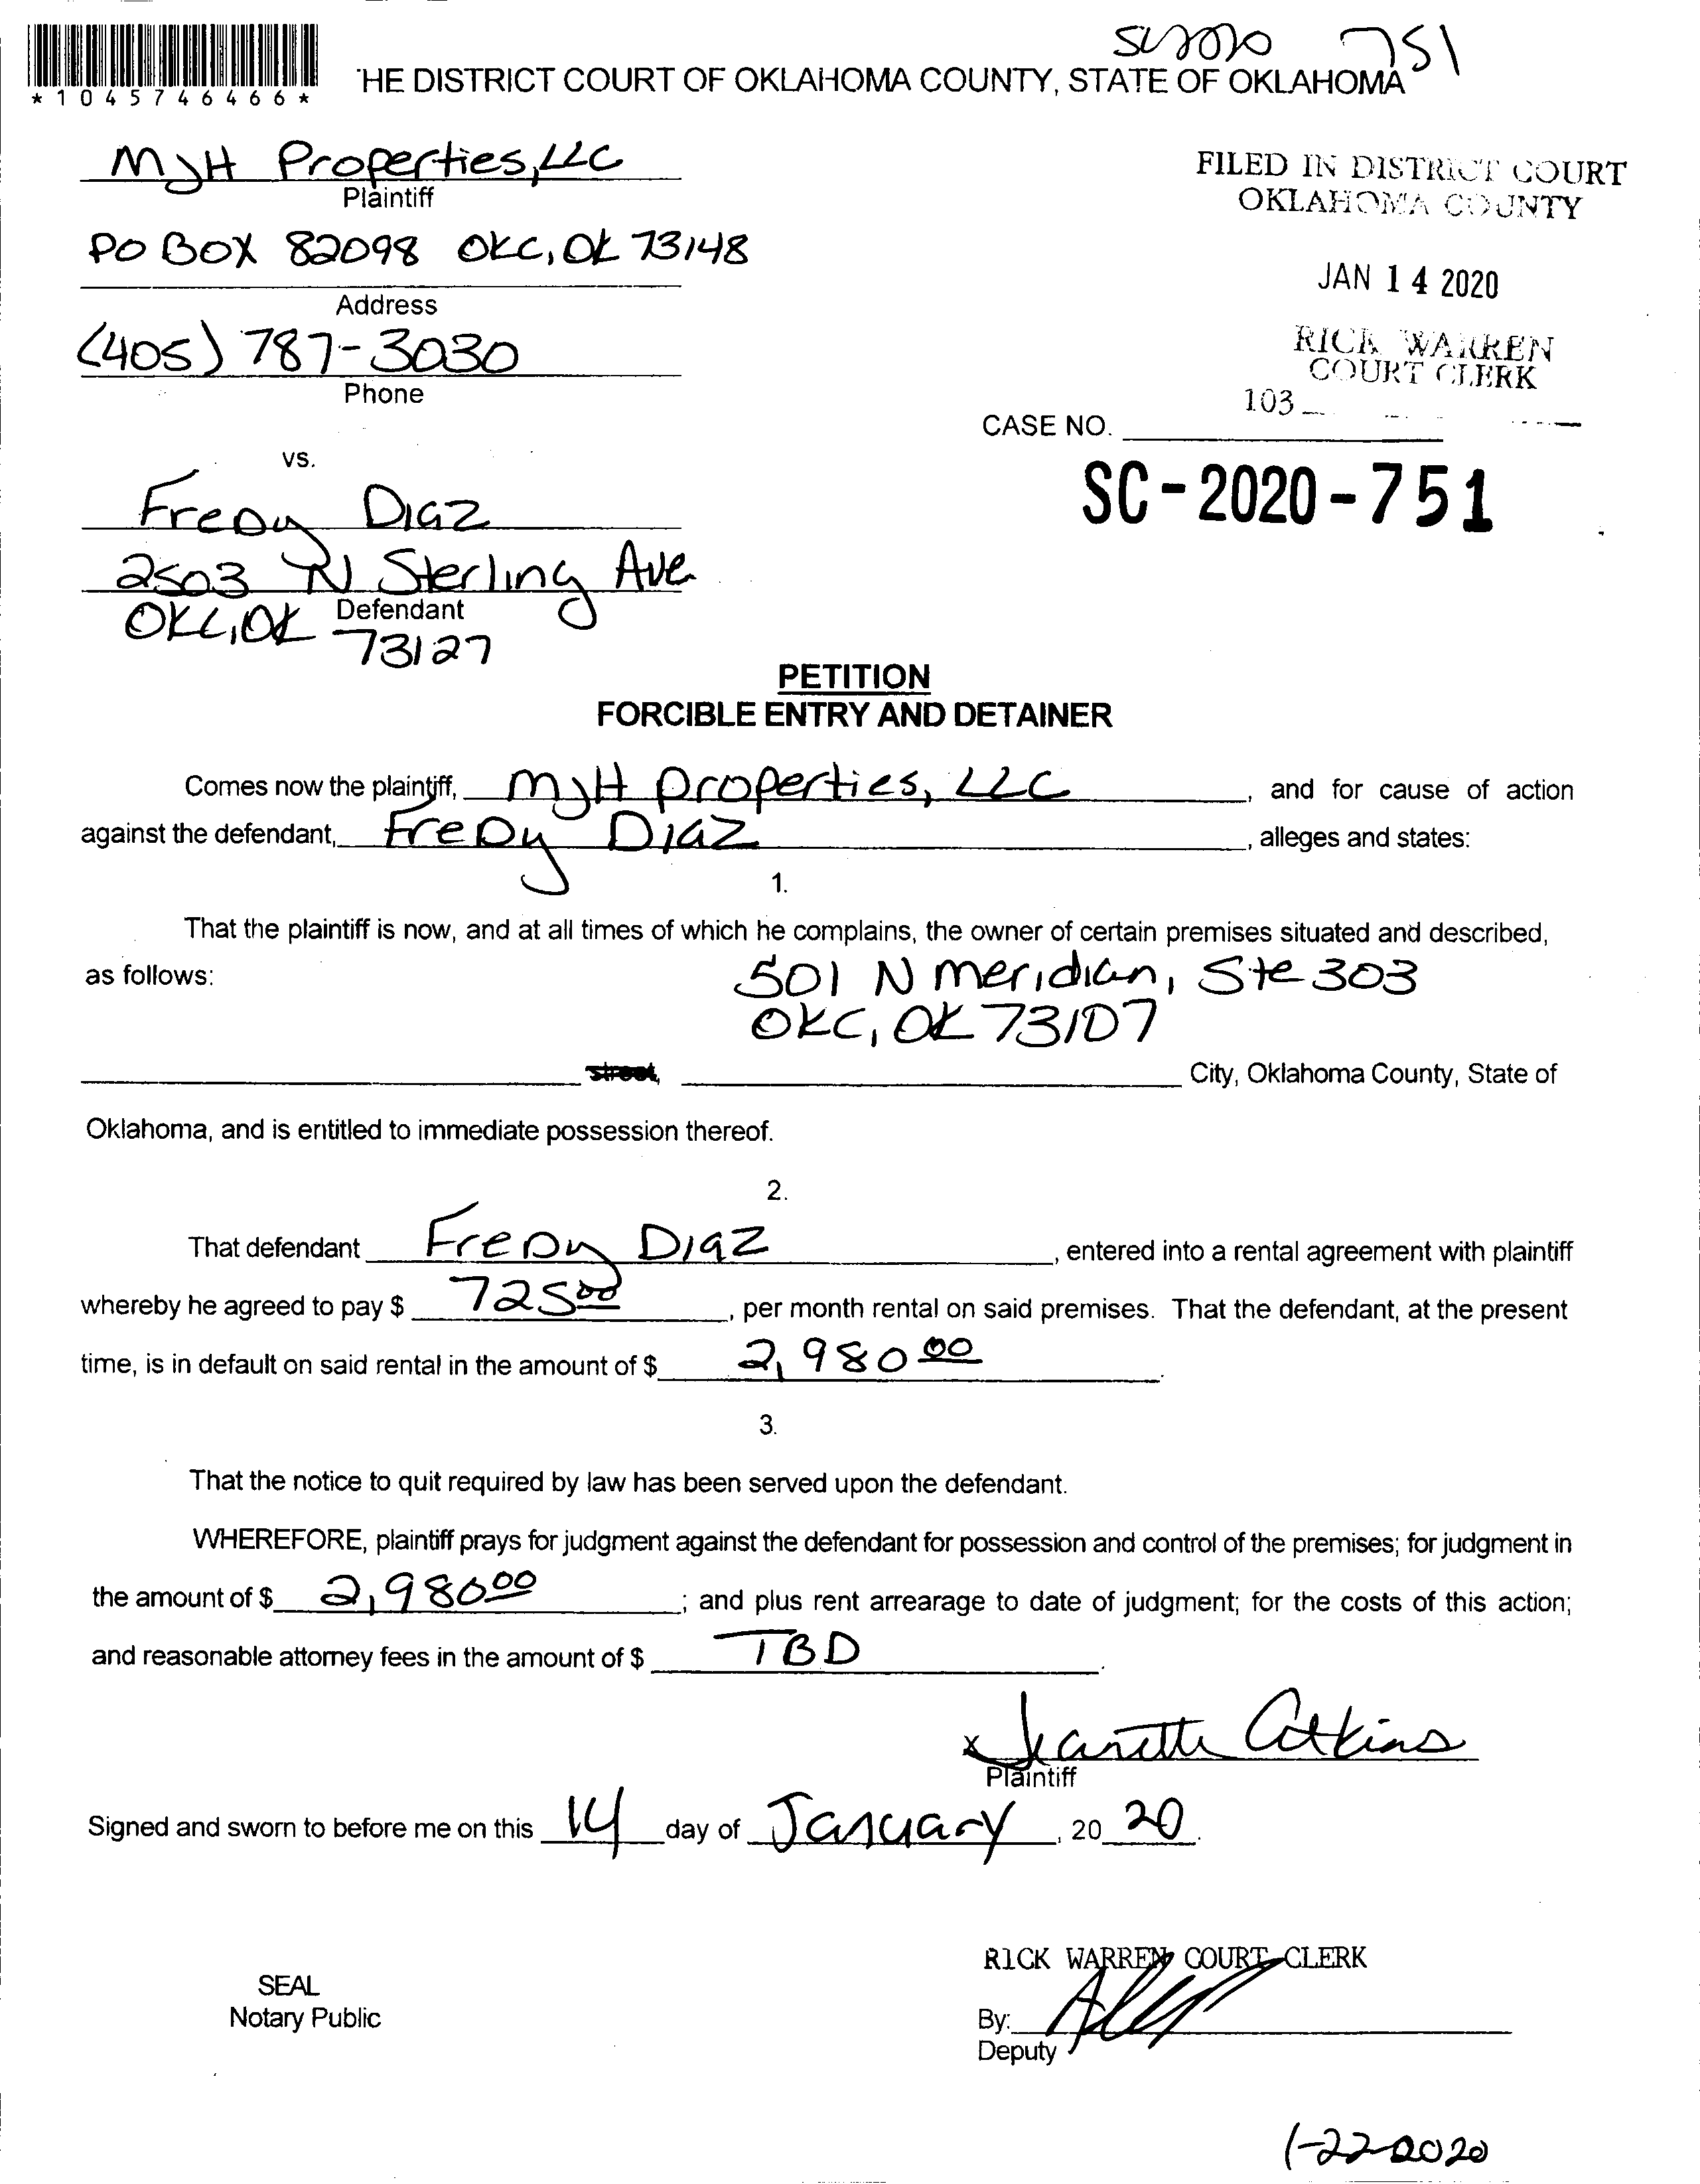 SC2020 751
*1045746466*
'HE DISTRICT COURT OF OKLAHOMA COUNTY, STATE OF OKLAHOMA
MJH Properties, LLC
Plaintiff
PO BOX 82098 OKC, OK 73148
Address
(405) 787-3030
Phone
FILED IN DISTRICT COURT
OKLAHOMA COUNTY
JAN 14 2020
RICK WARREN
COURT CLERK
103
CASE NO.
SC-2020-751
vs.
Fredy Diaz
2503 N Sterling Ave
Defendant
OKC, OK 73127
PETITION
FORCIBLE ENTRY AND DETAINER
Comes now the plaintiff, MJH Properties, LLC, and for cause of action
against the defendant, Fredy Diaz, alleges and states:
1.
That the plaintiff is now, and at all times of which he complains, the owner of certain premises situated and described,
as follows: 501 N Meridian, Ste 303
OKC, OK 73107
street, City, Oklahoma County, State of
Oklahoma, and is entitled to immediate possession thereof.
2.
That defendant Fredy Diaz, entered into a rental agreement with plaintiff
whereby he agreed to pay $ 725.00, per month rental on said premises. That the defendant, at the present
time, is in default on said rental in the amount of $ 2,980.00.
3.
That the notice to quit required by law has been served upon the defendant.
WHEREFORE, plaintiff prays for judgment against the defendant for possession and control of the premises; for judgment in
the amount of $ 2,980.00; and plus rent arrearage to date of judgment; for the costs of this action;
and reasonable attorney fees in the amount of $ TBD.
x Jeanette Atkins
Plaintiff
Signed and sworn to before me on this 14 day of January, 20 20.
RICK WARREN COURT CLERK
SEAL
Notary Public
By:
Deputy
1-22-2020